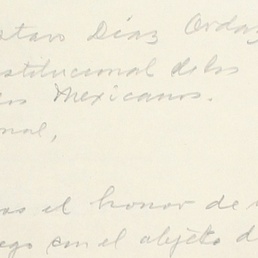 stavo Díaz Ordaz
stitucional de los
os Mexicanos.
nal,
el honor de
ego con el objeto d